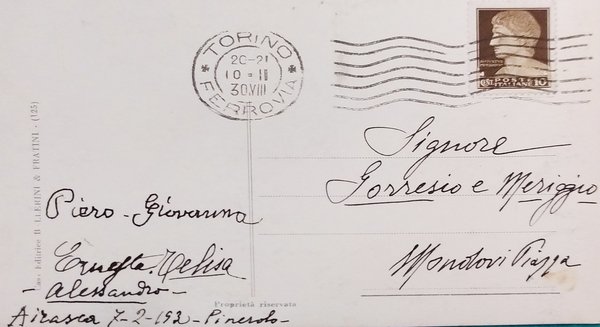 TORINO
20-21
10-II
30.VIII
FERROVIA
POSTE
ITALIANE 10
Signore
Gorresio e Meriggio
Mondovì Piazza
Piero - Giovanna
Ernesta - Melisa
- Alessandro -
Airasca 7-2-193 - Pinerolo -
Editrice B LLERINI & FRATINI - (125)
Proprietà riservata